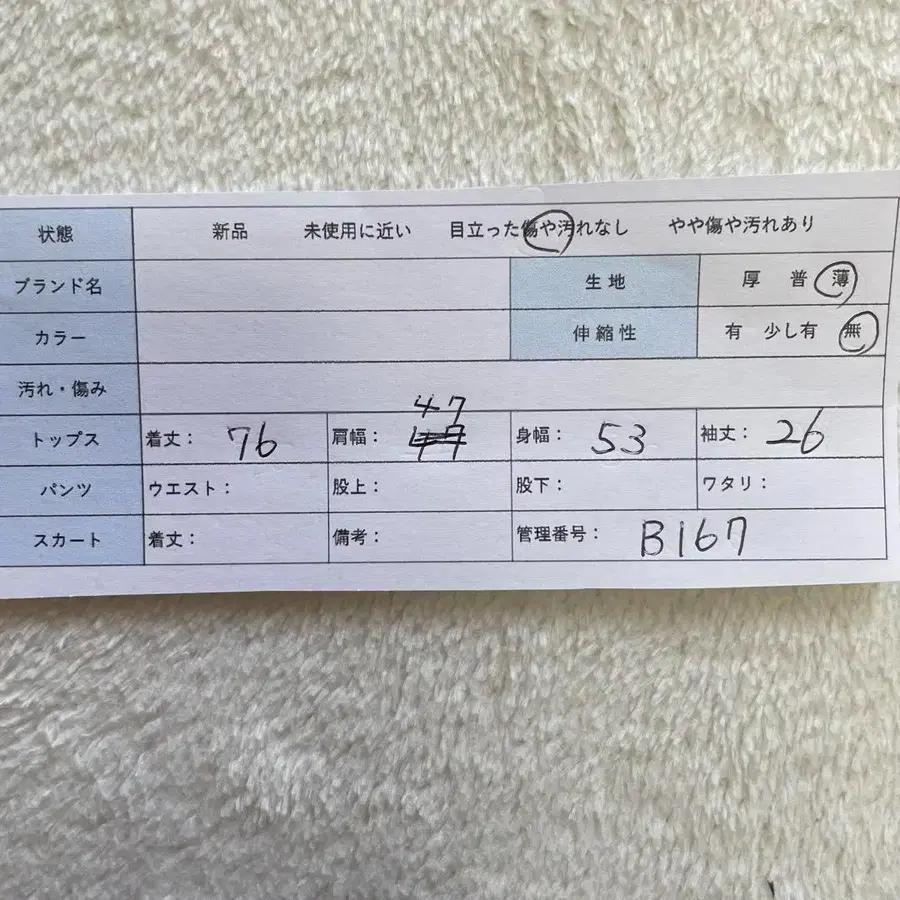 状態 新品 未使用に近い 目立った傷や汚れなし やや傷や汚れあり
ブランド名 生地 厚 普 薄
カラー 伸縮性 有 少し有 無
汚れ・傷み
47
トップス 着丈: 76 肩幅: 身幅: 53 袖丈: 26
パンツ ウエスト: 股上: 股下: ワタリ:
スカート 着丈: 備考: 管理番号: B167